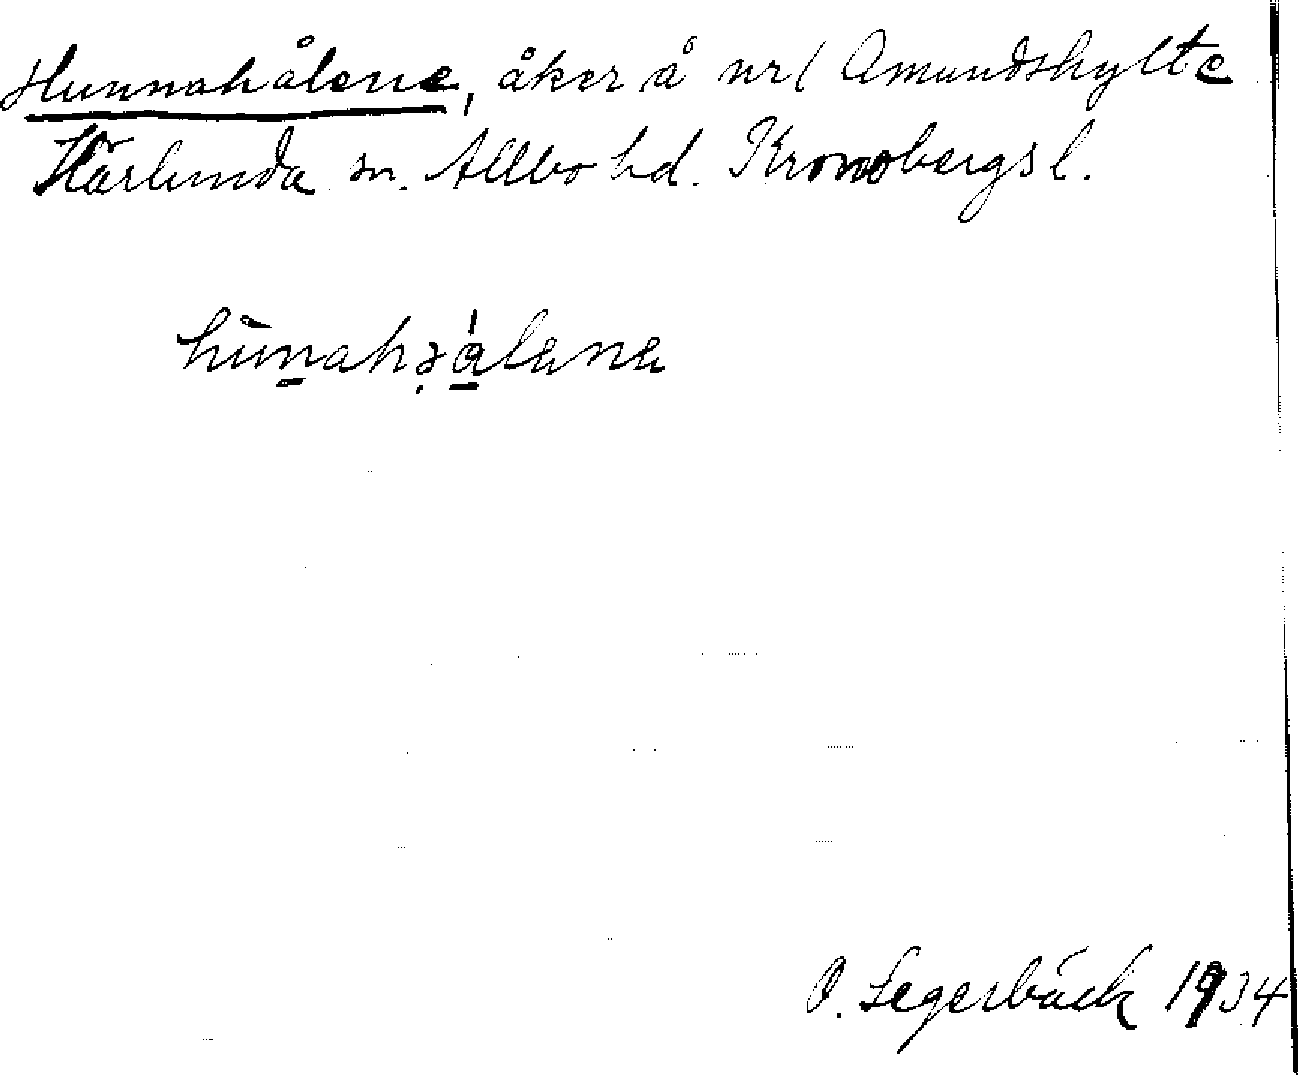 Hunnahålene, åker å nr 1 Amundshylte
Härlunda sn. Allbo hd. Kronobergs l.
O. Legerbäck 1934